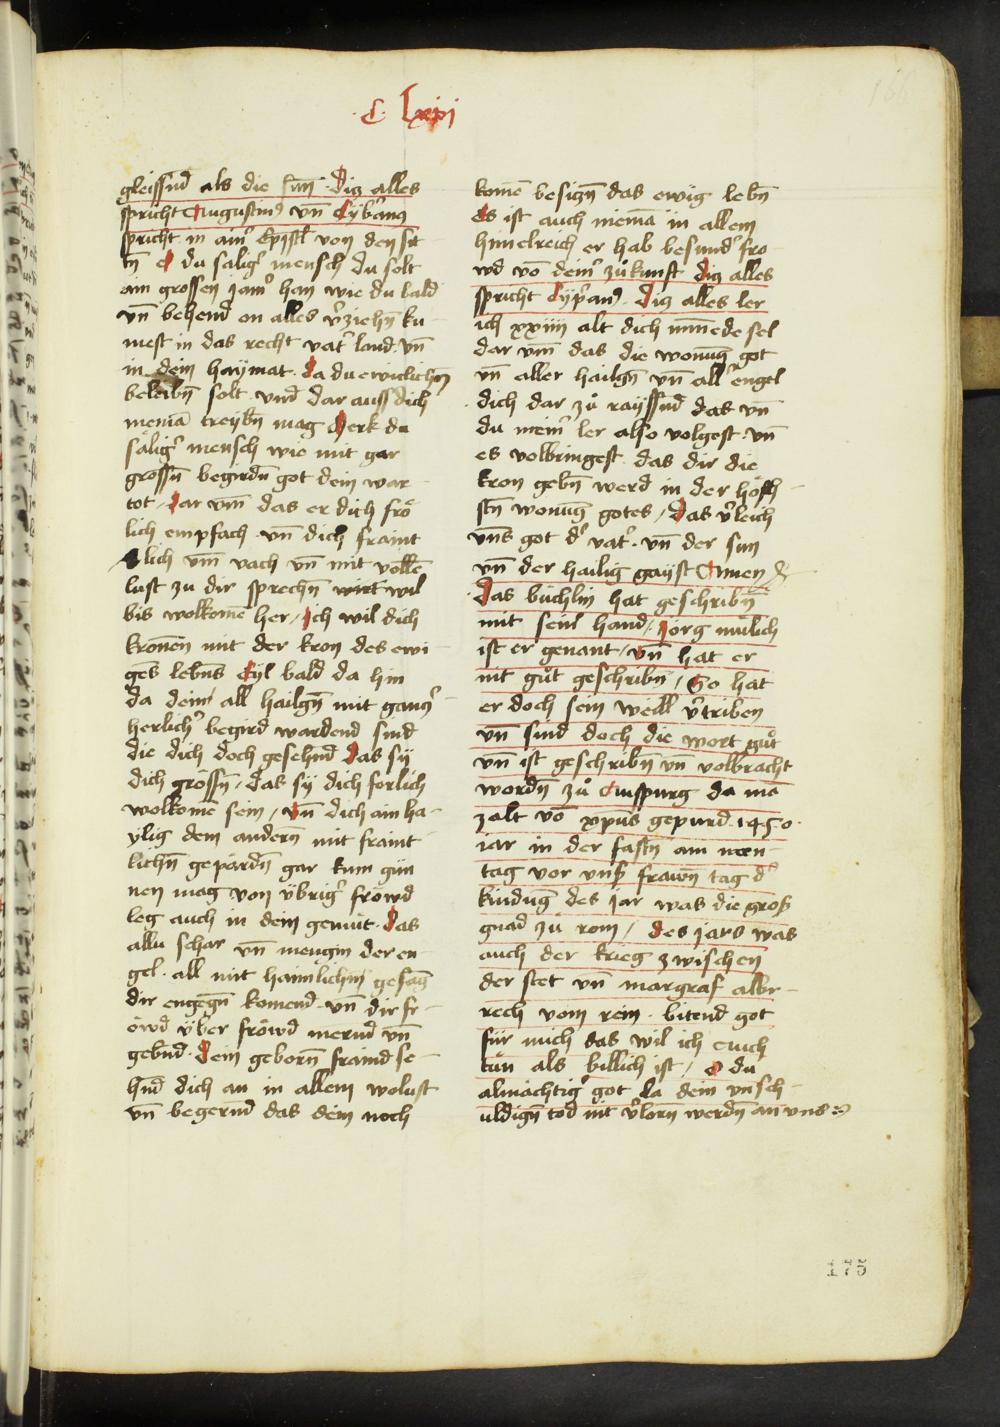 C lxvj
gleissnd als die sun̄ · Diz alles
spricht Augustin9 vn̄ Cybrang
spricht in ainr Epistl von den sit
tn̄ O du saligr mensch du solt
ain grossen jamr han wie du bald
vn̄ behend on alles vrziehn̄ ku
mest in das recht vatr land · vn̄
in dein haymat · Da du ewiclichn̄
beleibn̄ solt · vnd dar auss dich
niemā treybn̄ mag Merk du
sa̋ligr mensch wie mit gar
grossn̄ begirdn̄ got dein war
tot / Dar vm̄ das er dich frö
lich empfach · vn̄ dich fraint
lich vm̄ vach vn̄ mit vollē
lust zu dir sprechn̄ wirt wil
bis wolkomē her / Ich wil dich
kronen mit der kron des ewi
ges lebens Eyl bald da hin
da dein all hailgn̄ mit ganczr
herlichr begird wardend sind
die dich doch gesehnd Das sÿ
dich grössn̄ / das sÿ dich forlich
wolkomē sein / Vn̄ dich ain ha
ÿlig dem andern̄ mit fraint
lichn̄ gepärdn̄ gar kum gün
nen mag von v̈brigr fröwd
leg auch in dein gemüt · Das
allu schar vn̄ mengin der en
gel · all mit haimlichm̄ gesan̄g
dir engegn̄ komend · vn̄ dir fr
öwd v̈ber fröwd mernd vn̄
gebnd · Dein geborn̄ fraind se
hnd dich an in allem wolust
vn̄ begernd das dein noch
komē besiczn̄ das ewig lebn̄
Es ist auch niemā in allem
himelreich er hab besundr fro
wd vō deinr zůkunft Diz alles
spricht Cypran9 · Diz alles ler
ich xxiiii alt dich minnede sel
dar vm̄ das die wonūg got
vn̄ aller hailgn̄ vn̄ allr engel
dich dar zů rayssnd das vn̄
du meinr ler also volgest · vn̄
es volbringest · das dir die
kron gebn̄ werd in der höch
stn̄ wonūg gotes / Das vrleich
vns got dr vatr · vn̄ der sun
vn̄ der hailig gayst Amen
Das büchlin hat geschribn̄
mit seinr hand / Jörg mülich
ist er genant / vn̄ hat er
nit gůt geschribn̄ / So hat
er doch sein weill vrtriben
vn̄ sind doch die wort gůt
vn̄ ist geschribn̄ vn̄ volbracht
wordn̄ zů Auspurg da mā
zalt vō xpūs gepurd · 1450 ·
jar in der fastn̄ am men
tag vor vnsr frawn̄ tag dr
kündūg des jar was die gross
gnad zů rom / des jars was
auch der krieg zwischen
der stet vn̄ margraf albr
rech vom rein · bitend got
für mich das wil ich euch
tůn als billich ist / O du
almächtigr got La dein vnsch
uldign̄ tod nit vrlorn̄ werdn̄ an vns
175